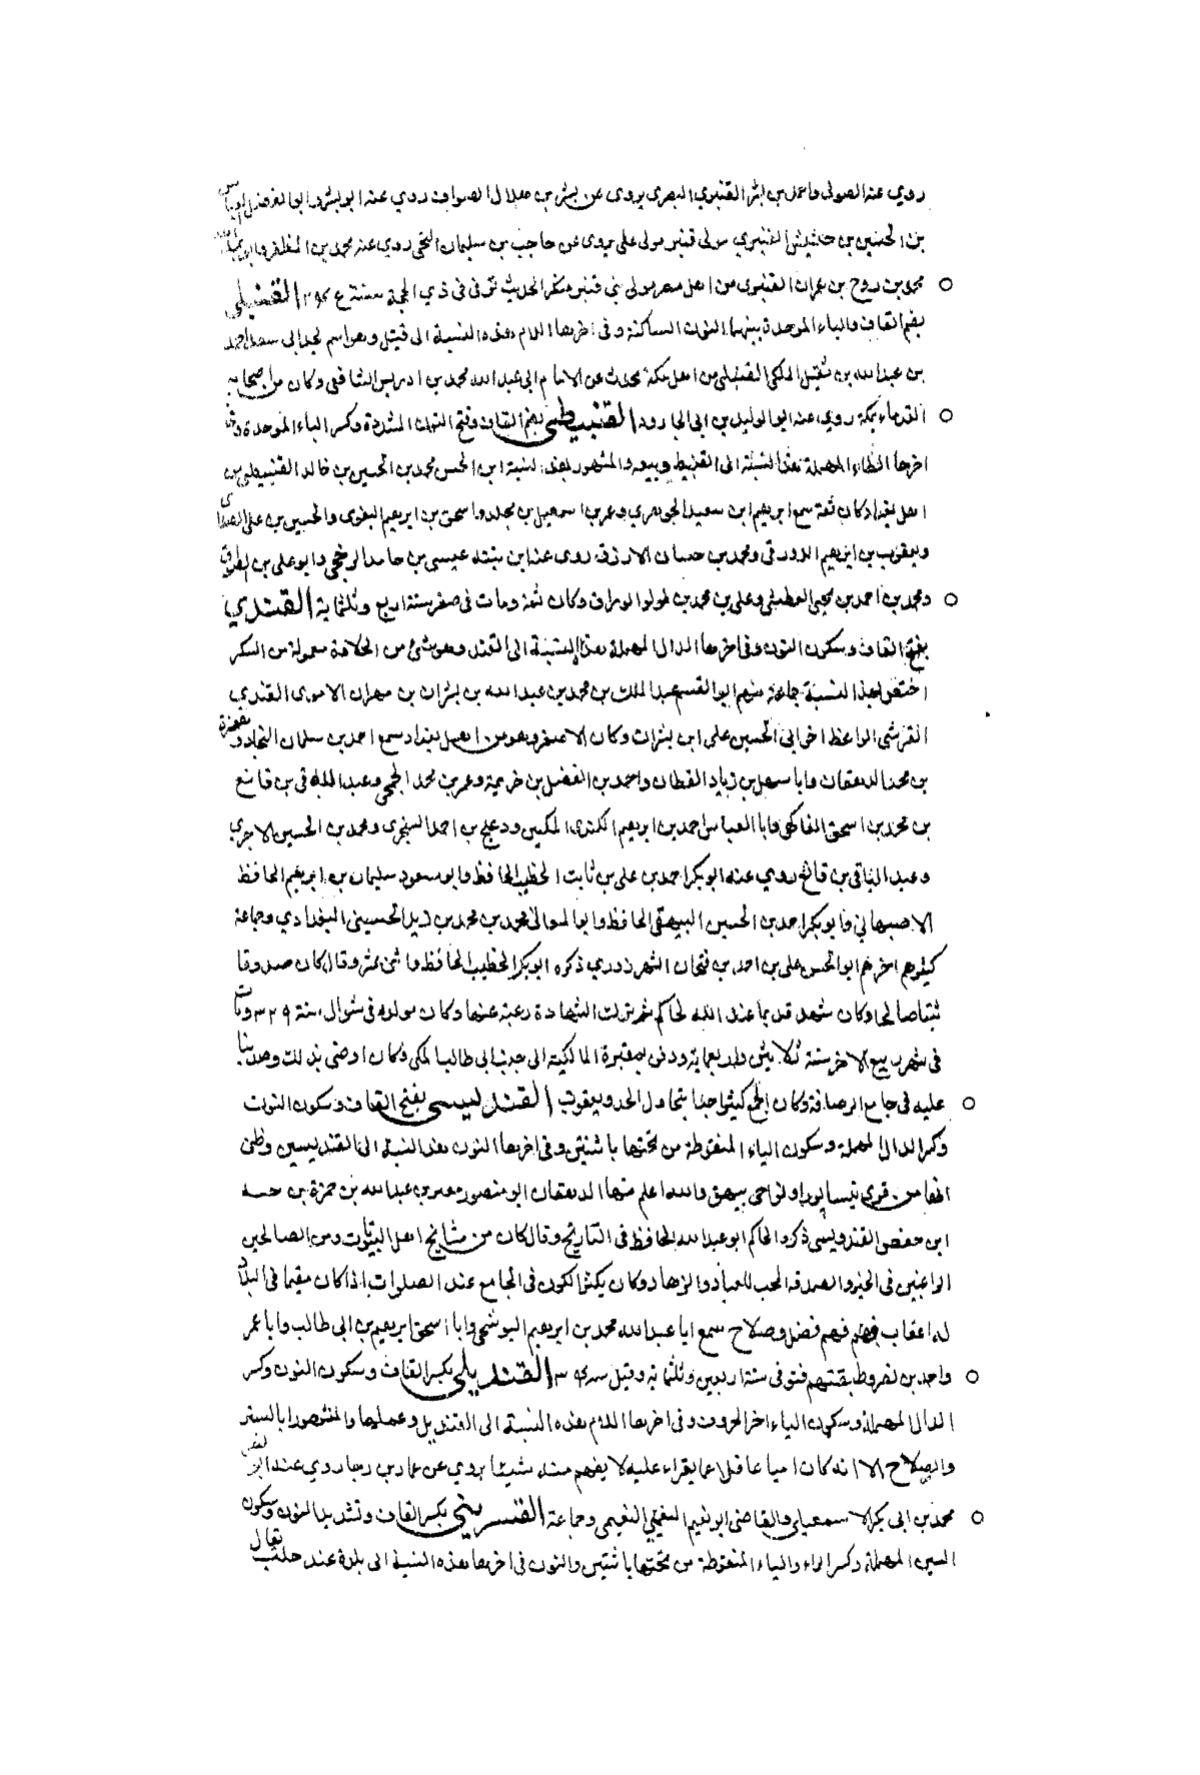 روي عنه الصولى واحمد بن بشر القنبري البصرى يروى عن بشر بن هلال الصواف روي عنه ابو بشر وابو الفضل
بن الحسين بن حشيش القنبري مولى قنبر مولى على يروى عن حاجب بن سليمان روي عنه محمد بن المظفر
محمد بن روح بن عمران القنبرى من اهل مصر مولى بني قنبر منكر الحديث توفى فى ذي الحجة سنة القنبلي
بضم القاف والباء الموحدة بينهما النون الساكنة وفى اخرها اللام هذه النسبة الى قنبل وهو اسم لجد ابى سعد احمد
بن عبد الله بن قنبل المكى القنبلى من اهل مكة يحدث عن الامام ابى عبد الله محمد بن ادريس الشافعى وكان من اصحابه
القدماء بمكة روى عنه ابو الوليد بن ابى الجارود القنبيطى بضم القاف وفتح النون المشددة وكسر الباء الموحدة وفى
اخرها الطاء المهملة هذه النسبة الى القنبيط وبيعه والمشهور بهذه النسبة ابو الحسن محمد بن الحسين بن خالد القنبيطى من
اهل بغداد كان ثقة سمع ابرهيم بن سعيد الجوهرى وعمر بن اسمعيل بن مجالد واسحق بن ابرهيم البغوى والحسين بن على الصدائى
ويعقوب بن ابرهيم الدورقى ومحمد بن حسان الازرق روى عنه ابن بنته عيسى بن حامد الرخجى وابو على بن
ومحمد بن احمد بن يحيى العطشى وعلى بن محمد بن لولو الوراق وكان ثقة ومات فى صفر سنة اربع وثلثماية القندي
بفتح القاف وسكون النون وفى اخرها الدال المهملة هذه النسبة الى القند وهو شئ من الحلاوة معمولة من السكر
اختص بهذا النسبة جماعة منهم ابو القسم عبد الملك بن محمد بن عبد الله بن بشران بن مهران الاموى القندى
القرشى الواعظ اخو ابى الحسين على ابن بشران وكان الاصغر وهو من اهل بغداد سمع احمد بن سلمان النجاد وحمزة
بن محمد الدهقان وابا سهل بن زياد القطان واحمد بن الفضل بن خزيمة وعمر بن محمد الجمحى وعبد الباقى بن قانع
بن محمد بن اسحق الفاكهى وابا العباس احمد بن ابرهيم الكندى المكيين ودعلج بن احمد السنجرى ومحمد بن الحسين الاجري
وعبد الباقى بن قانع روي عنه ابو بكر احمد بن على بن ثابت الخطيب الحافظ وابو مسعود سليمان بن ابرهيم الحافظ
الاصبهاني وابو بكر احمد بن الحسين البيهقى الحافظ وابو المعالى محمد بن محمد بن زيد الحسينى البغدادي وجماعة
كثيرة اخرهم ابو الحسن على بن احمد بن فتحان الشهرزوري ذكره ابو بكر الخطيب الحافظ واثنى عليه وقال كان صدوقا
ثبتا صالحا وكان شهد قديما عند الحاكم ثم ترك الشهادة رغبة عنها وكان مولده فى شوال سنة ٣٣٩ ومات
فى شهر ربيع الاخر سنة ثلاثين واربعماية ودفن بمقبرة المالكية الى جنب ابى طالب المكى وكان اوصى بذلك وصلينا
عليه فى جامع الرصافة وكان الجمع كثيرا جدا يتجاوز الحد ويفوت القندليسى بفتح القاف وسكون النون
وكسر الدال المهملة وسكون الياء المنقوطة من تحتها باثنتين وفى اخرها النون هذه النسبة الى القنديسين وظنى
انها من قرى نيسابور او نواحى بيهق والله اعلم منها الدهقان ابو منصور معمر بن عبد الله بن حمزة بن حسه
ابن حفص القندويسى ذكره الحاكم ابو عبد الله الحافظ فى التاريخ وقال كان من مشايخ اهل البيوت ومن الصالحين
الراغبين فى الخير والصدقة المحب للعباد والزهاد وكان يكثر الكون فى الجامع عند الصلوات اذا كان مقيما فى البلاد
له اعقاب فيهم فضل وصلاح سمع ابا عبد الله محمد بن ابرهيم البوشنجى وابا اسحق ابرهيم بن ابى طالب وابا عمر
واحمد بن نصر وطبقتهم فتوفى سنة اربعين وثلثماية وقيل سنة ٣ القنديلى بكسر القاف وسكون النون وكسر
الدال المهملة وسكون الياء اخر الحروف وفى اخرها اللام هذه النسبة الى القنديل وعملها والمشهور ابا لستر
والصلاح الا انه كان اميا عاقلا عما يقراء عليه لا يفهم منه شيئا يروي عن عمار بن رجا روي عنه ابو
محمد بن ابى بكر الاسمعيلى والقاضى ابو نعيم النعيمى وجماعة القنسرينى بكسر القاف وتشديد النون وسكون
السين المهملة وكسر الراء والياء المنقوطة من تحتها باثنتين والنون فى اخرها هذه النسبة الى بلدة عند حلب يقال